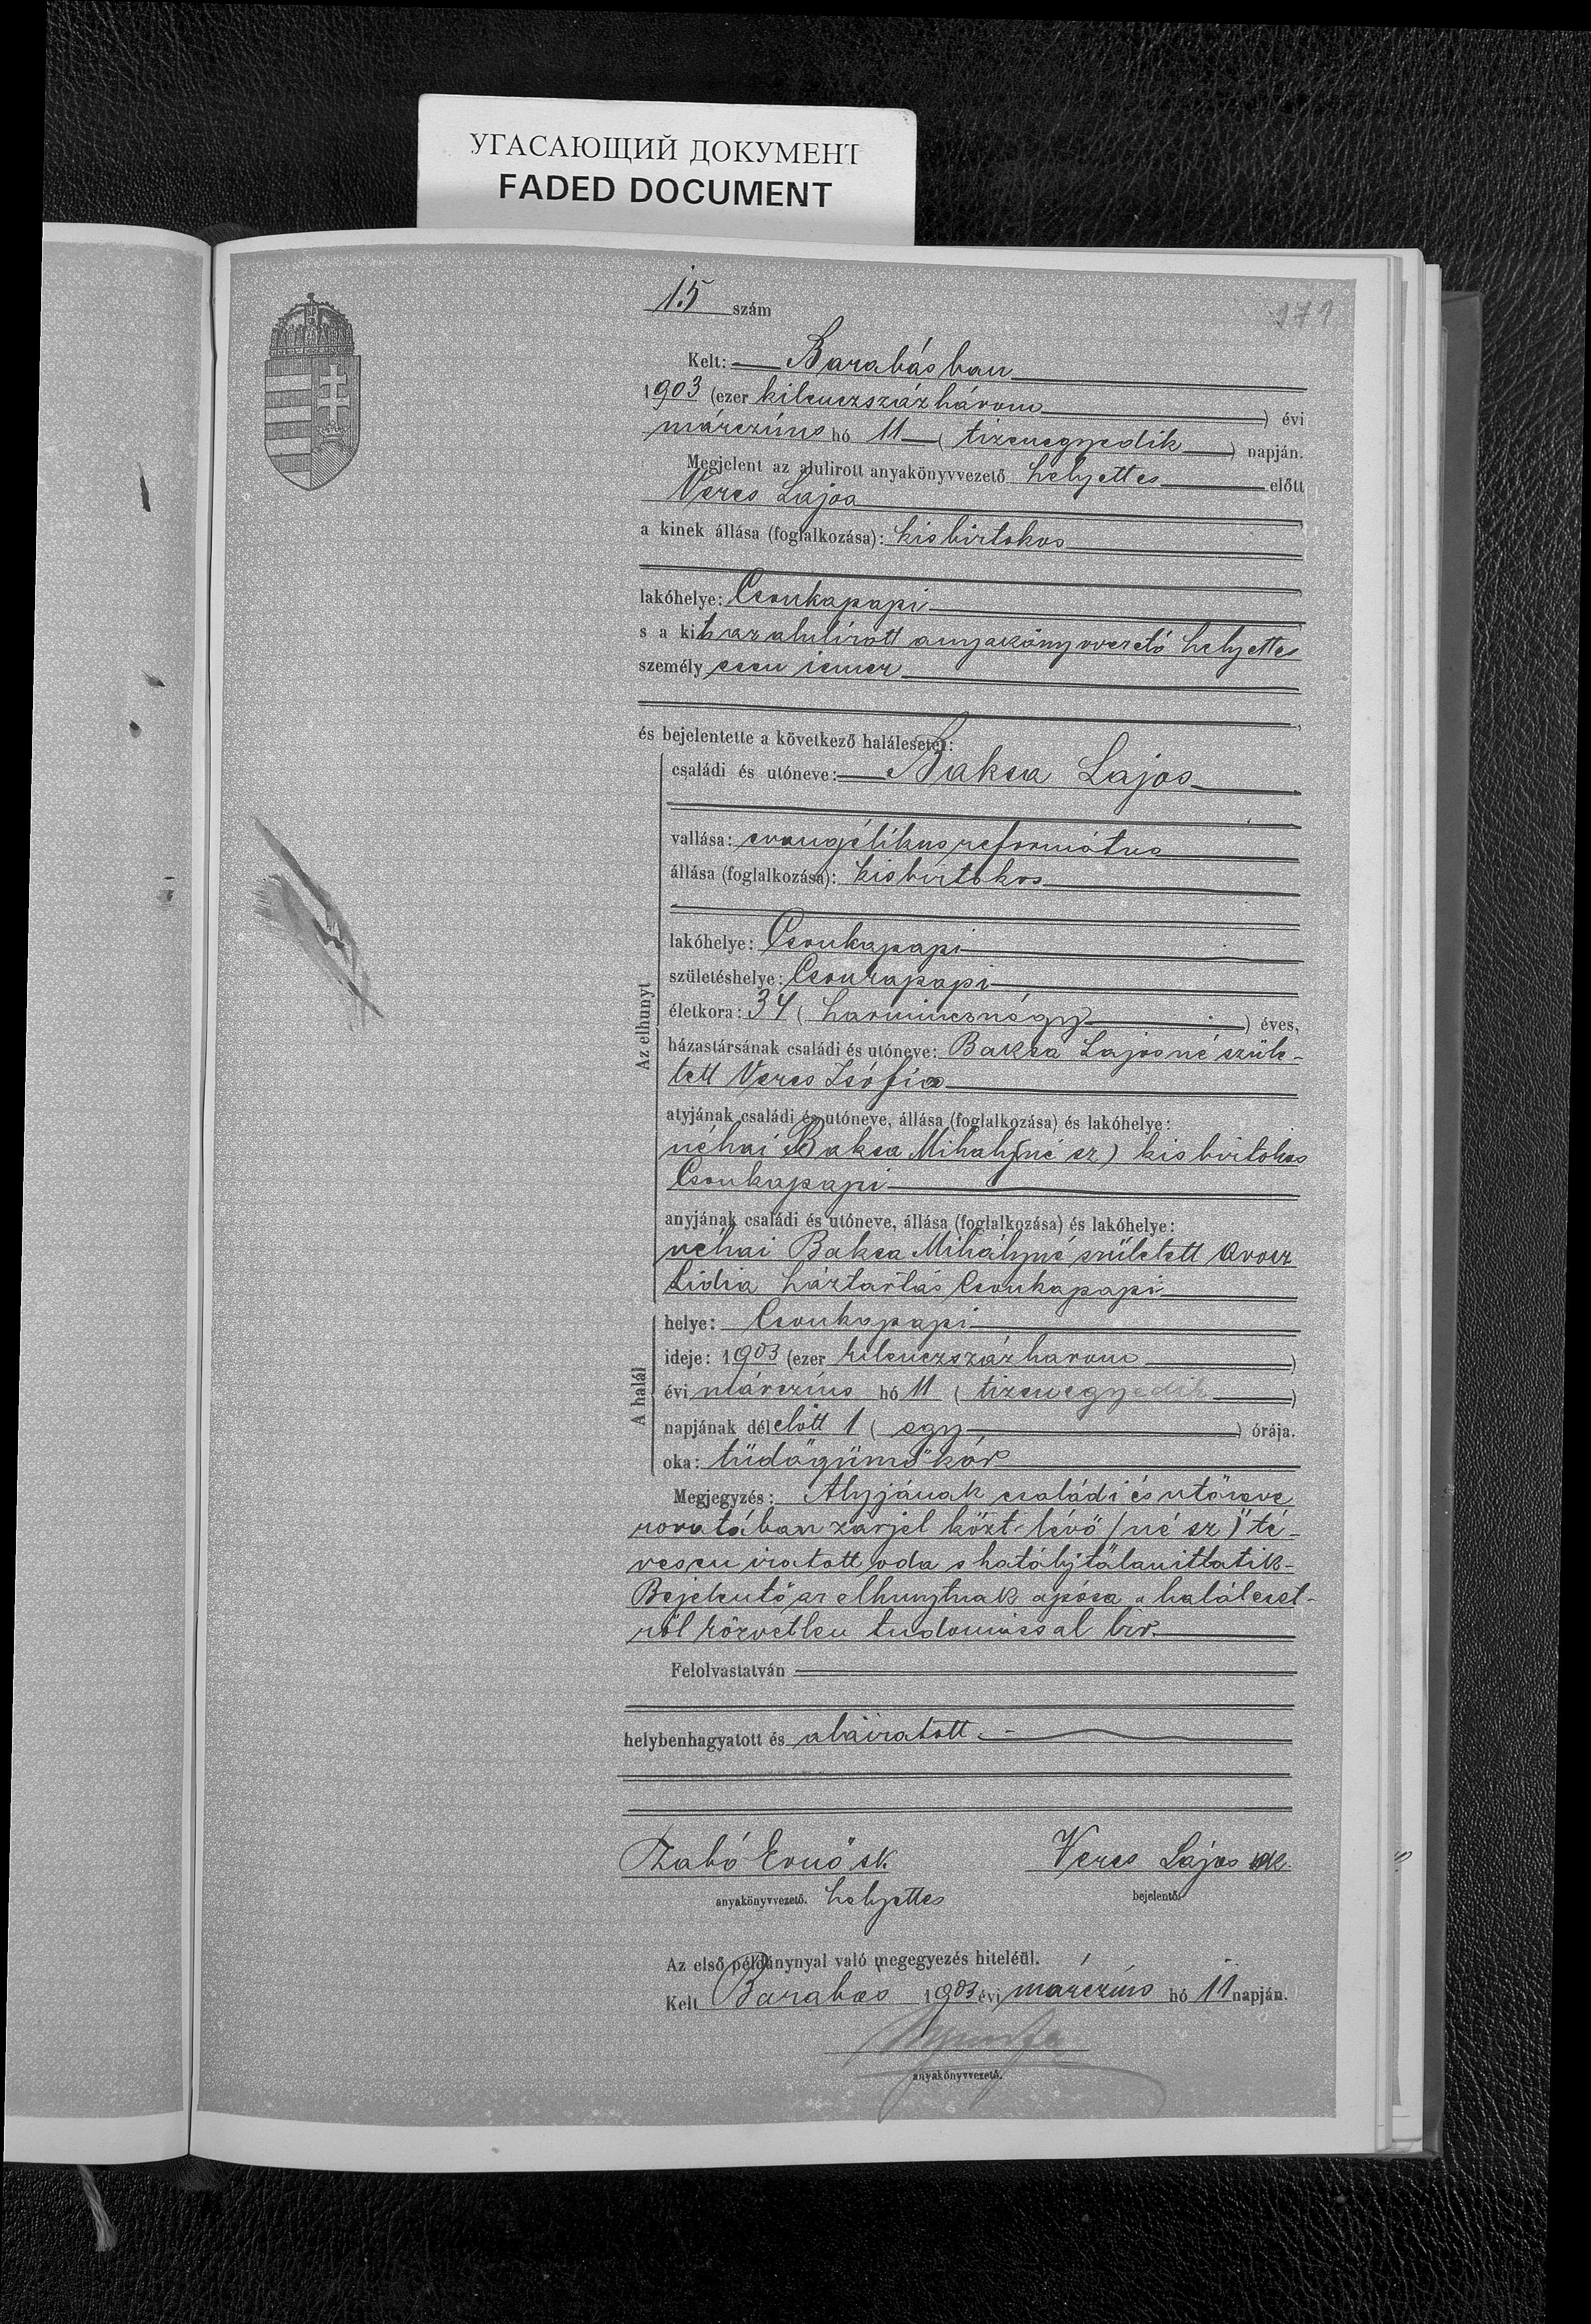 УГАСАЮЩИЙ ДОКУМЕНТ
FADED DOCUMENT
15 szám
271
Kelt: Barabásban
1903 (ezer kilenczszázhárom) évi
márczius hó 11 (tizenegyedik) napján.
Megjelent az alulirott anyakönyvvezető helyettes előtt
Veres Lajos
a kinek állása (foglalkozása): kisbirtokos
lakóhelye: Csonkapapi
s a kit az alulirott anyakönyvvezető helyettes
személyesen ismer
és bejelentette a következő halálesetet:
Az elhunyt
családi és utóneve: Baksa Lajos
vallása: evangélikus református
állása (foglalkozása): kisbirtokos
lakóhelye: Csonkapapi
születéshelye: Csonkapapi
életkora: 34 (harmincznégy) éves,
házastársának családi és utóneve: Baksa Lajosné szüle-
tett Veres Zsófia
atyjának családi és utóneve, állása (foglalkozása) és lakóhelye:
néhai Baksa Mihály (né sz) kisbirtokos
Csonkapapi
anyjának családi és utóneve, állása (foglalkozása) és lakóhelye:
néhai Baksa Mihályné született Orosz
Lidia háztartás Csonkapapi
A halál
helye: Csonkapapi
ideje: 1903 (ezer kilenczszázhárom)
évi márczius hó 11 (tizenegyedik)
napjának délelőtt 1 (egy) órája.
oka: tüdőgümőkór
Megjegyzés: Atyjának családi és utóneve
rovatában zárjel közt lévő (né sz)" té-
vesen iratott oda s hatálytalanittatik-
Bejelentő az elhunytnak apósa a haláleset-
ről közvetlen tudomással bir.
Felolvastatván
helybenhagyatott és aláiratott.-
Szabó Ernő sk. Veres Lajos sk.
anyakönyvvezető. helyettes bejelentő.
Az első példánynyal való megegyezés hiteléül.
Kelt Barabás 1903 évi márczius hó 11 napján.
anyakönyvvezető.